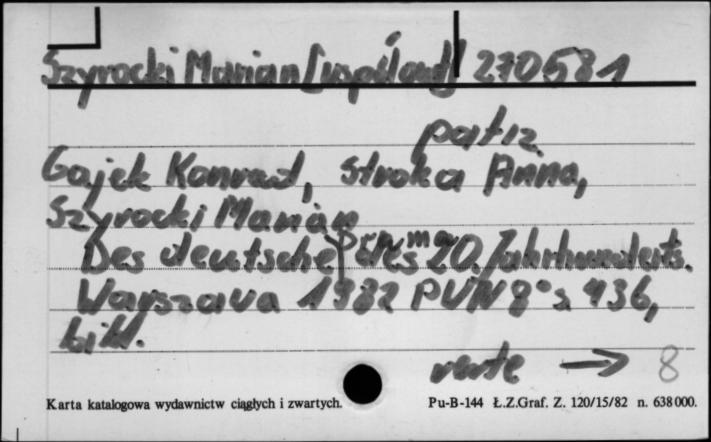 Szyrocki Marian [współaut] 270581
patrz
Gajek Konrad, Stroka Anna,
Szyrocki Marian
Das deutsche Drama des 20. Jahrhunderts.
Warszawa 1982 PWN 8° s. 436,
bibl.
verte → 8
Karta katalogowa wydawnictw ciągłych i zwartych.
Pu-B-144 Ł.Z.Graf. Z. 120/15/82 n. 638000.